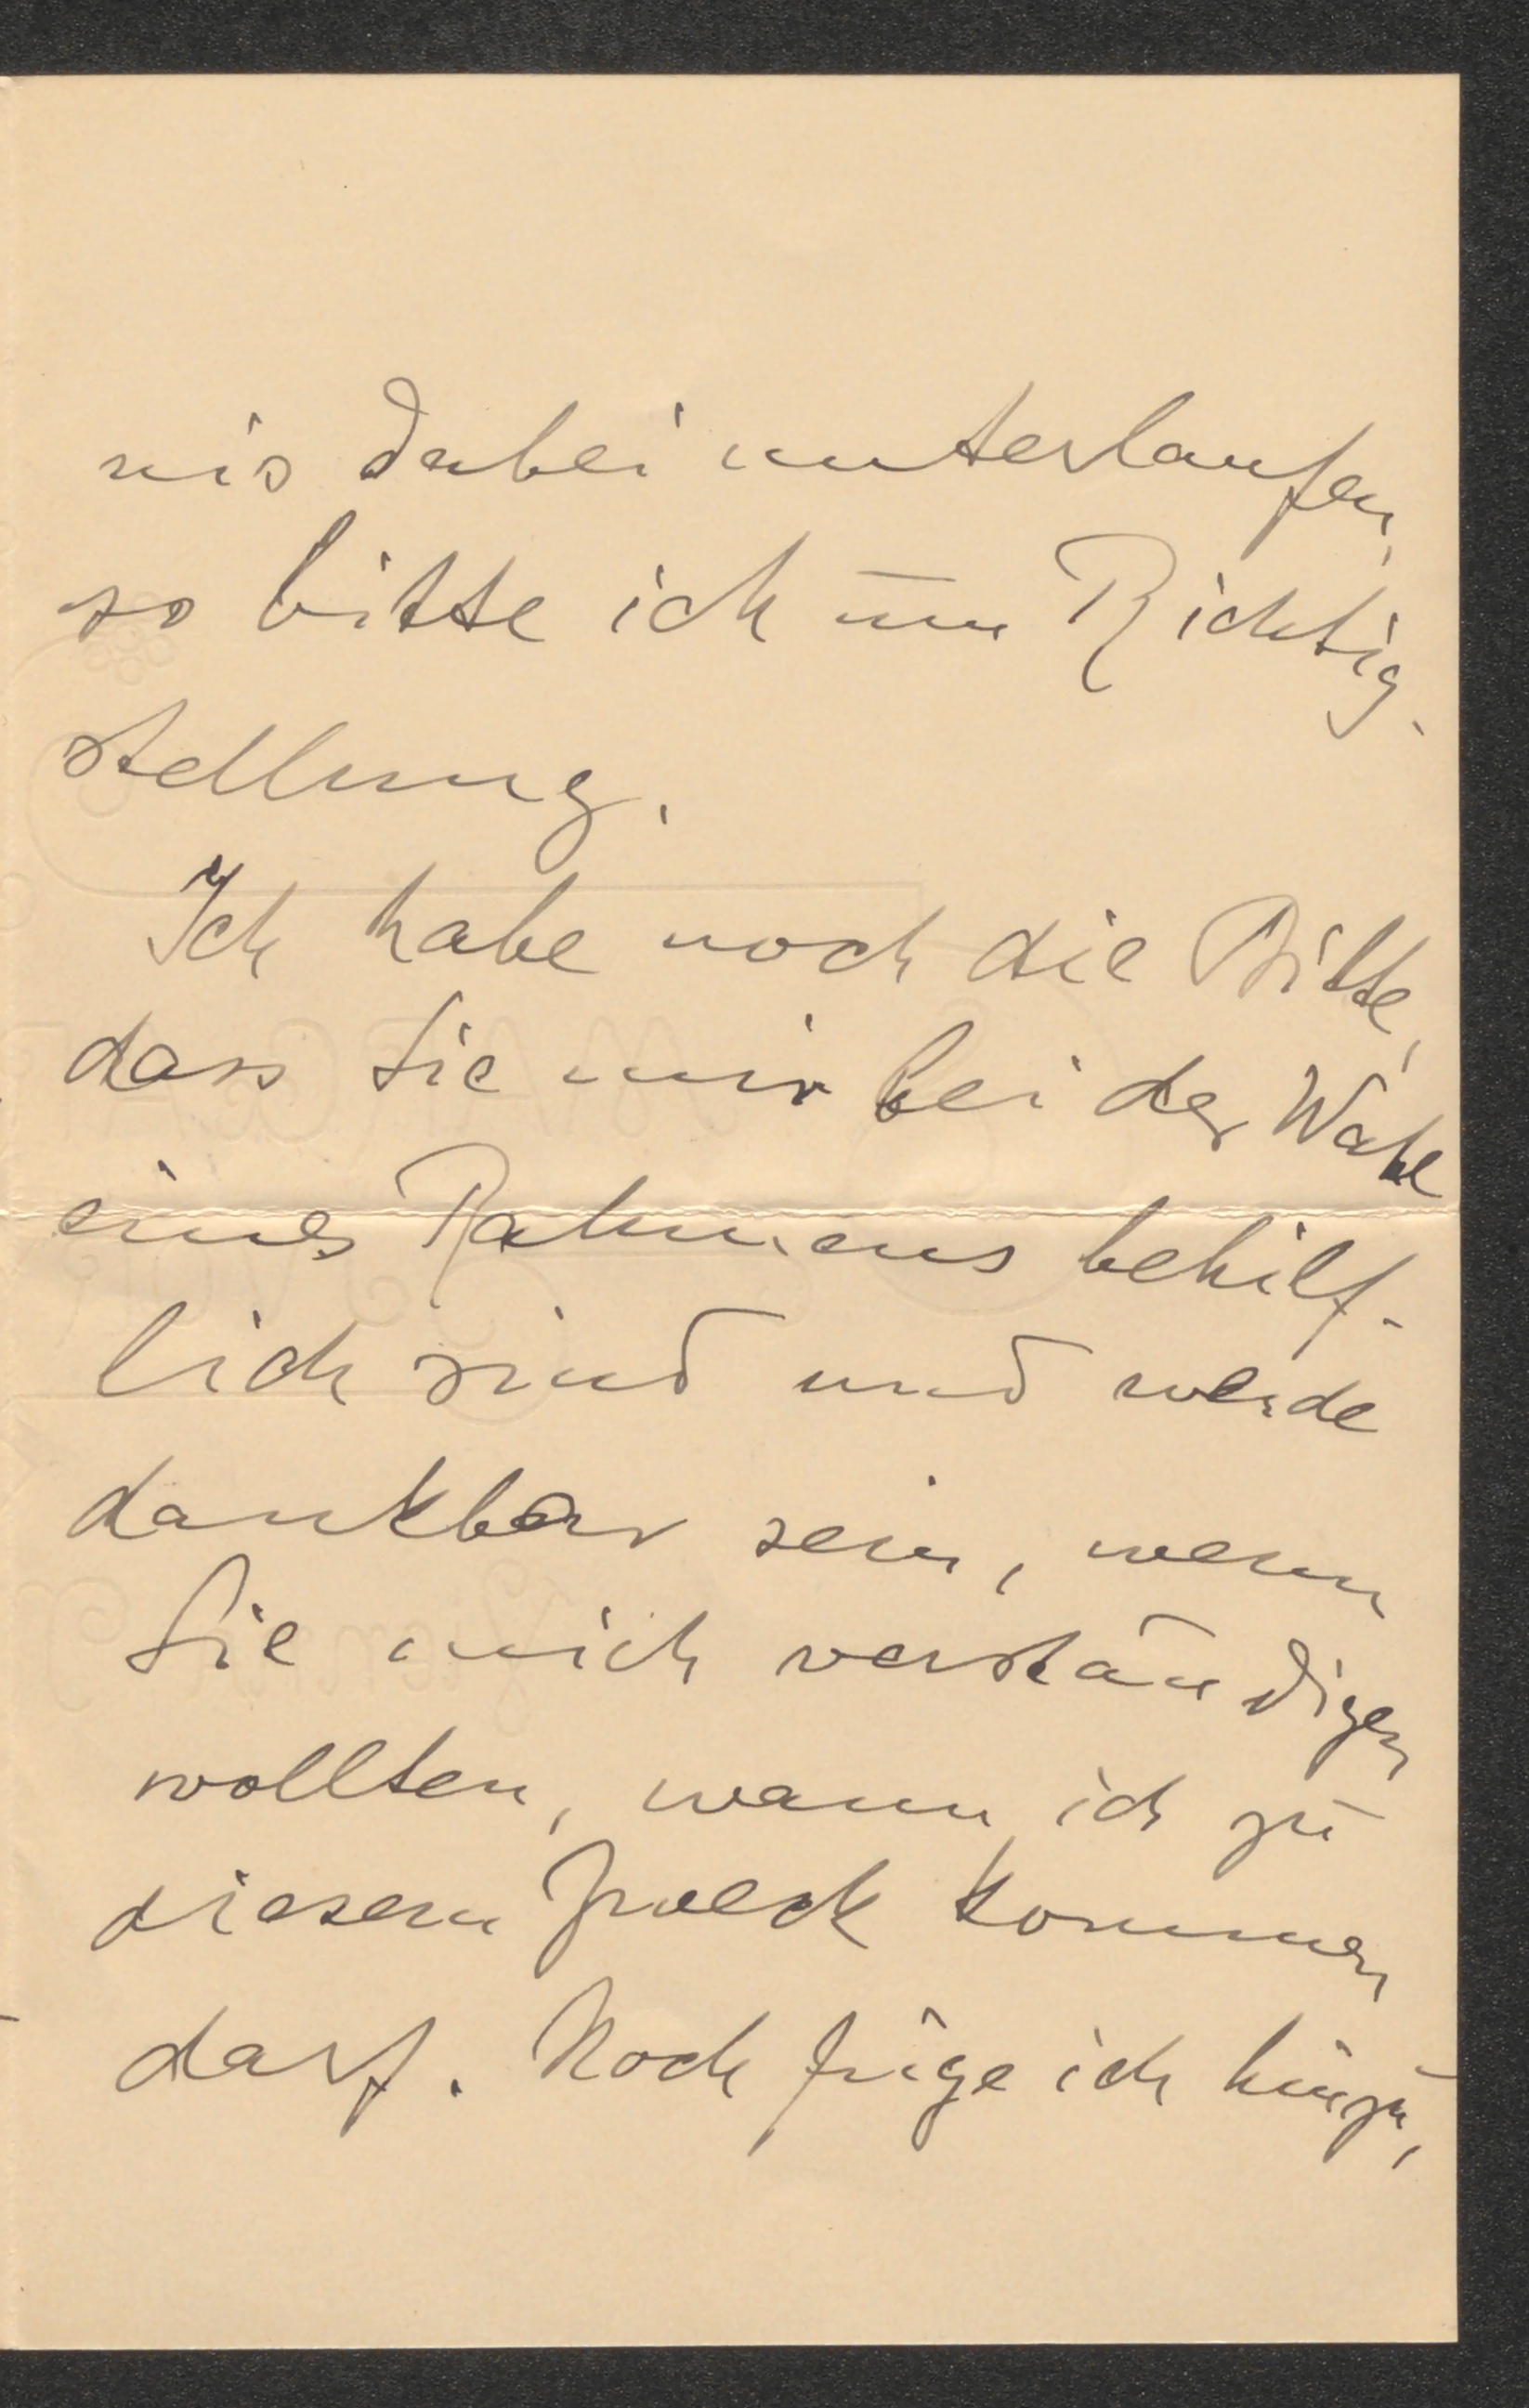 nis dabei unterlaufen,
so bitte ich um Richtig-
stellung.
Ich habe noch die Bitte,
dass Sie mir bei der Wahl
eines Rahmens behilf-
lich sind und werde
dankbar sein, wenn
Sie mich verständigen
wollten, wann ich zu
diesem Zweck kommen
darf. Noch füge ich hinzu,